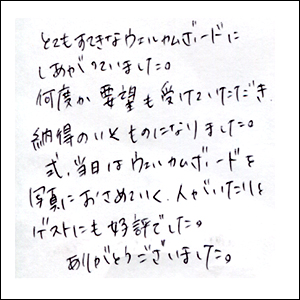 とてもすてきなウェルカムボードに
しあがっていました。
何度か要望も受けていただき
納得のいくものになりました。
式、当日はウェルカムボードを
写真におさめていく人がいたりと
ゲストにも好評でした。
ありがとうございました。